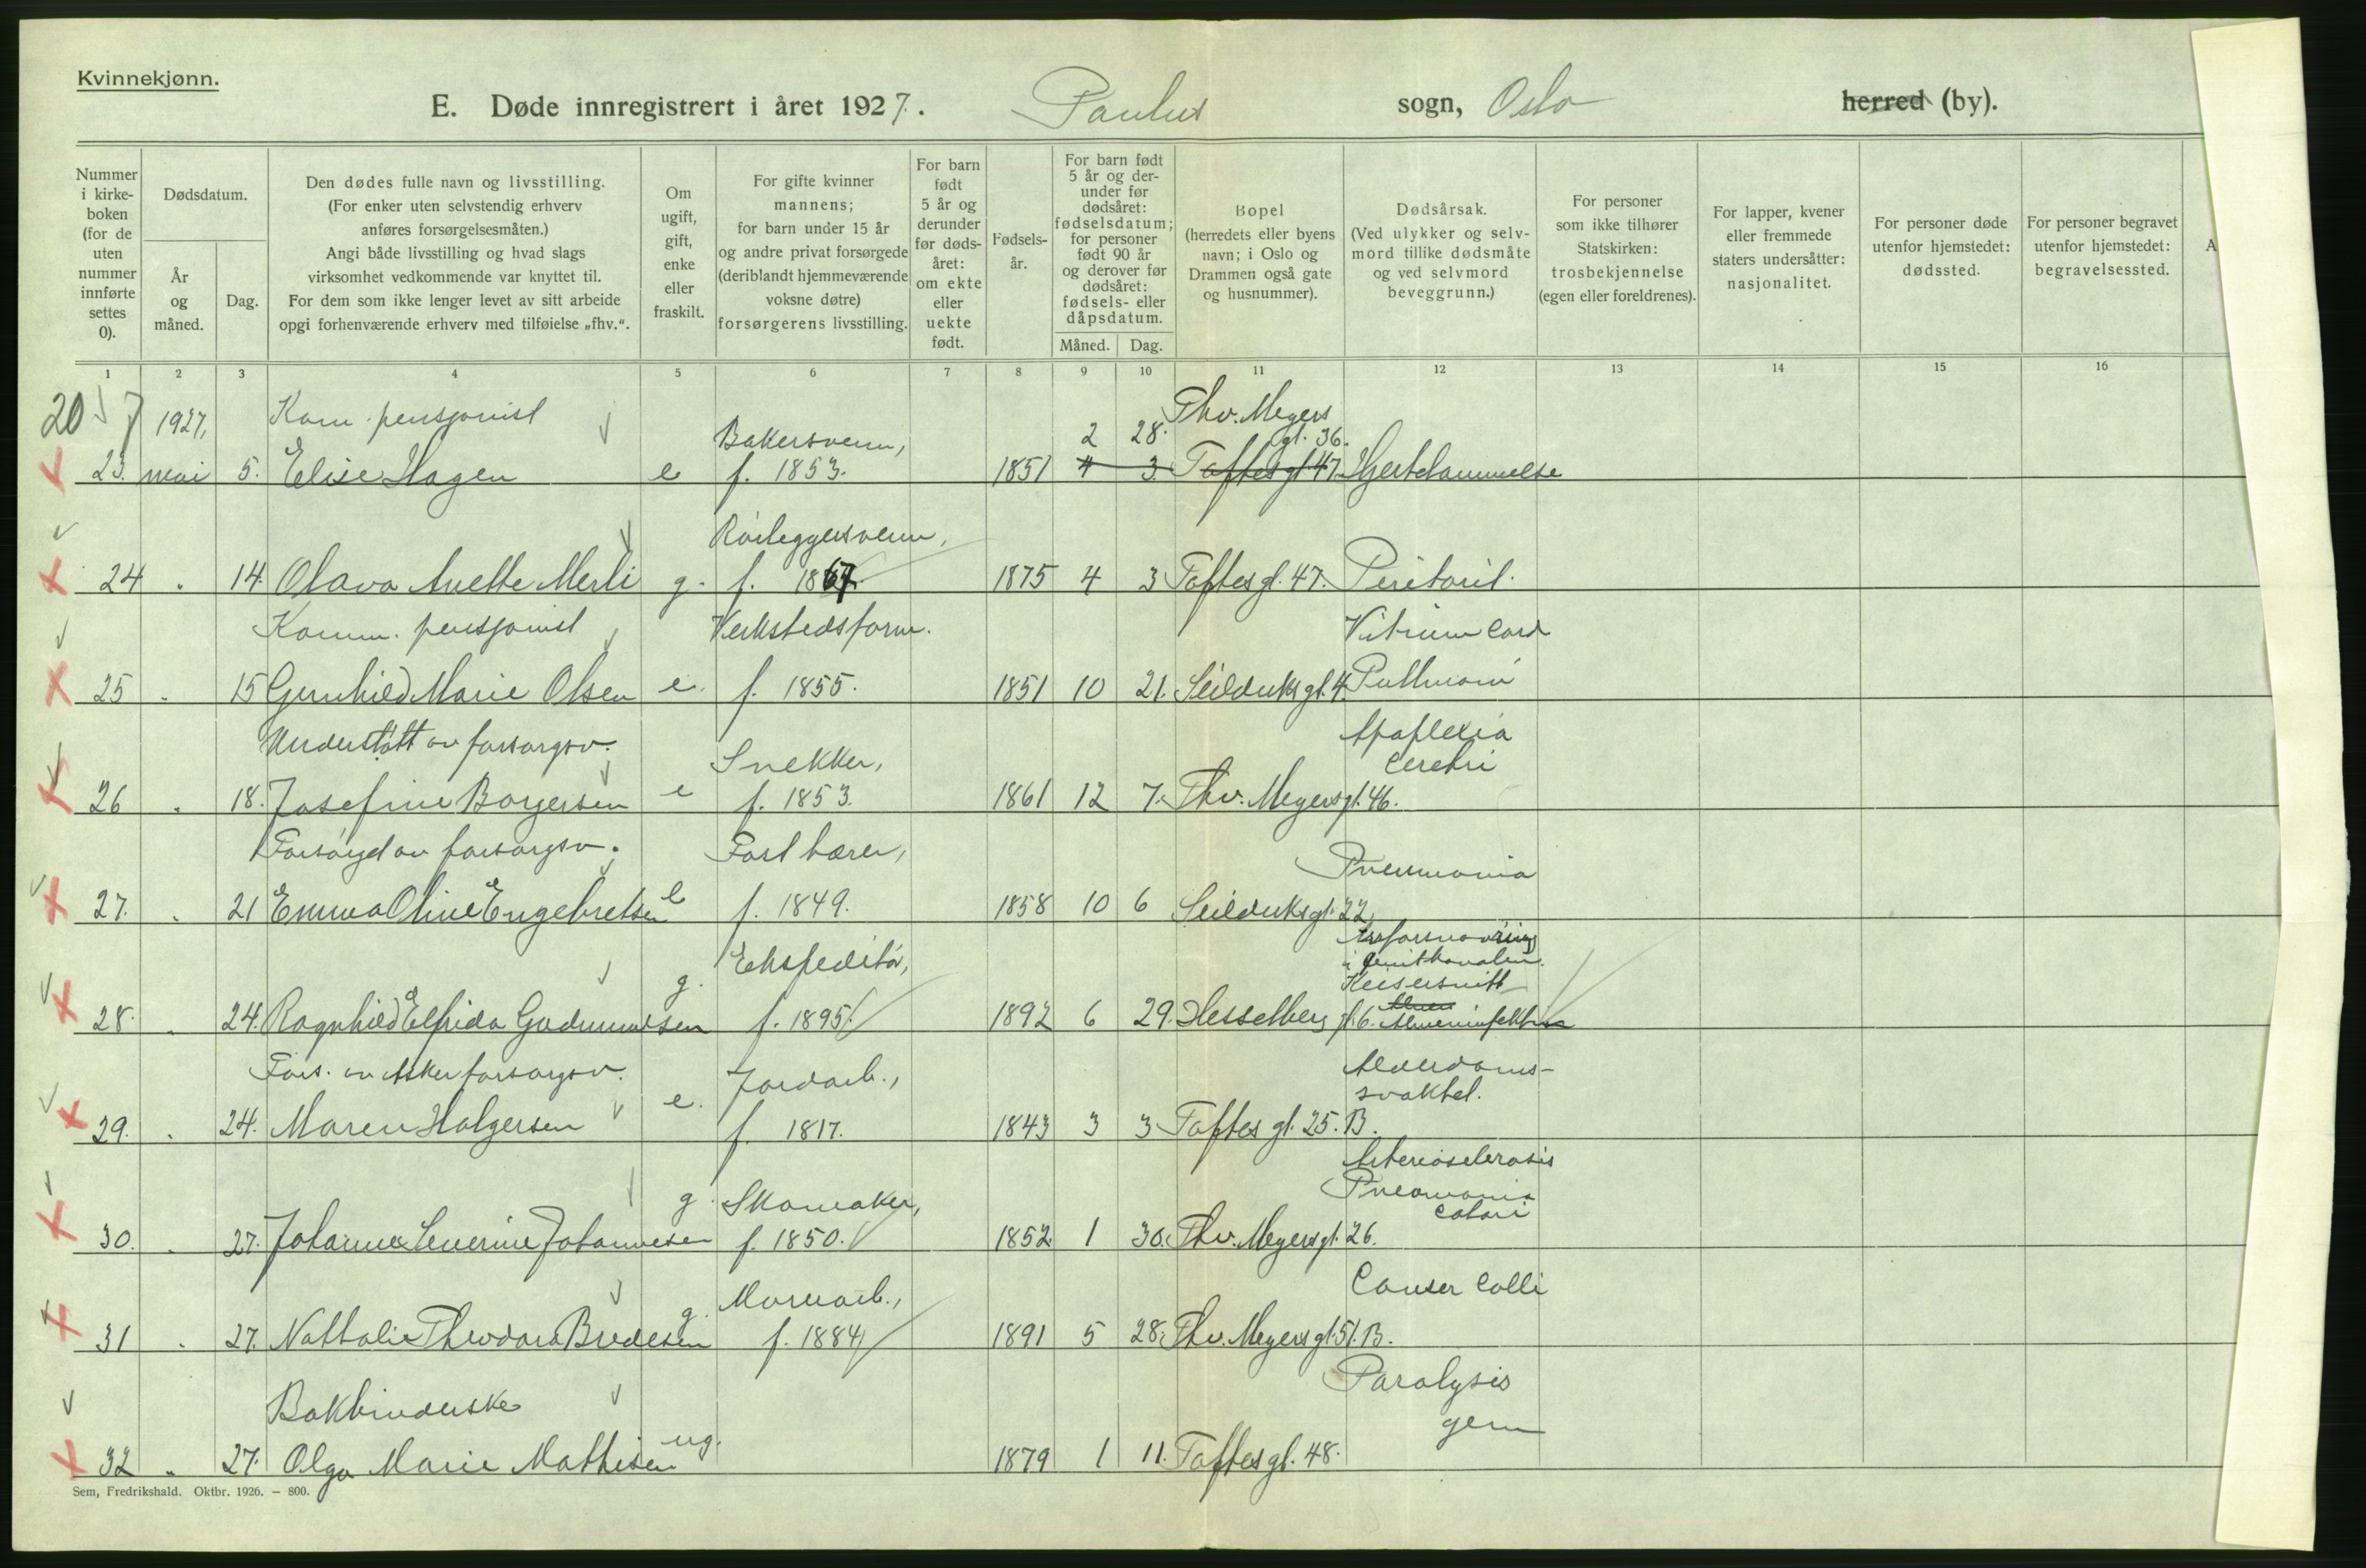 Kvinnekjønn.
E. Døde innregistrert i året 1927. Paulus sogn, Oslo herred (by).
Nummer i kirke-boken (for de uten nummer innførte settes 0).
Dødsdatum.
År og måned.
Dag.
Den dødes fulle navn og livsstilling.
(For enker uten selvstendig erhverv
anføres forsørgelsesmåten.)
Angi både livsstilling og hvad slags
virksomhet vedkommende var knyttet til.
For dem som ikke lenger levet av sitt arbeide
opgi forhenværende erhverv med tilføielse „fhv.“.
Om ugift, gift, enke eller fraskilt.
For gifte kvinner
mannens;
for barn under 15 år
og andre privat forsørgede
(deriblandt hjemmeværende
voksne døtre)
forsørgerens livsstilling.
For barn født 5 år og derunder før døds-året: om ekte eller uekte født.
Fødsels-år.
For barn født
5 år og der-
under før
dødsåret:
fødselsdatum;
for personer
født 90 år
og derover før
dødsåret:
fødsels- eller
dåpsdatum.
Måned. Dag.
Bopel
(herredets eller byens
navn; i Oslo og
Drammen også gate
og husnummer).
Dødsårsak.
(Ved ulykker og selv-
mord tillike dødsmåte
og ved selvmord
beveggrunn.)
For personer
som ikke tilhører
Statskirken:
trosbekjennelse
(egen eller foreldrenes).
For lapper, kvener
eller fremmede
staters undersåtter:
nasjonalitet.
For personer døde
utenfor hjemstedet:
dødssted.
For personer begravet
utenfor hjemstedet:
begravelsessted.
A
1 2 3 4 5 6 7 8 9 10 11 12 13 14 15 16
20 7 1927, Kom. pensjonist Bakersvenn, 2 28. Thv. Meyers gt. 36.
23. mai 5. Elise Hagen e f. 1853. 1851 4 3. Toftesgt 47. Hjertelammelse
Rörleggersvenn,
24 " 14. Olava Anette Merli g. f. 1867. 1875 4 3 Toftesgt. 47. Peritonit.
Komm. pensjonist Verkstedsform. Vitium Cord
25 " 15 Gunhild Marie Olsen e. f. 1855. 1851 10 21. Seilduksgt. 4.
Understött av forsorgsv. Snekker, Apoplexia Cerebri
26 " 18. Josefine Borgersen e f. 1853. 1861 12 7. Thv. Meyersgt. 46.
Forsörget av forsorgsv. Fast bærer, Pneumonia
27. " 21 Emma Oline Engebretsen e f. 1849. 1858 10 6 Seilduksgt. 22.
Ekspeditör, Keisersnitt
28. " 24. Ragnhild Elfrida Gudmundsen g. f. 1895. 1892 6 29. Hesselberg gt. 6.
Fors. av Asker forsorgsv. Jordarb., Alderdoms-
svakhet.
29. " 24. Maren Holgersen e. f. 1817. 1843 3 3 Toftes gt. 25. B.
Arteriosclerosis
Skomaker, Pneumonia
30. " 27. Johanne Severine Johannesen g. f. 1850. 1852 1 30. Thv. Meyersgt. 26.
Murarb., Cancer Colli
31 " 27. Nathalie Theodora Bredesen g. f. 1884 1891 5 28. Thv. Meyersgt. 51. B.
Bokbinderske Paralysis
gen
32 " 27. Olga Marie Mathisen ug. 1879 1 11. Toftesgt. 48.
Sem, Fredrikshald. Oktbr. 1926. — 800.